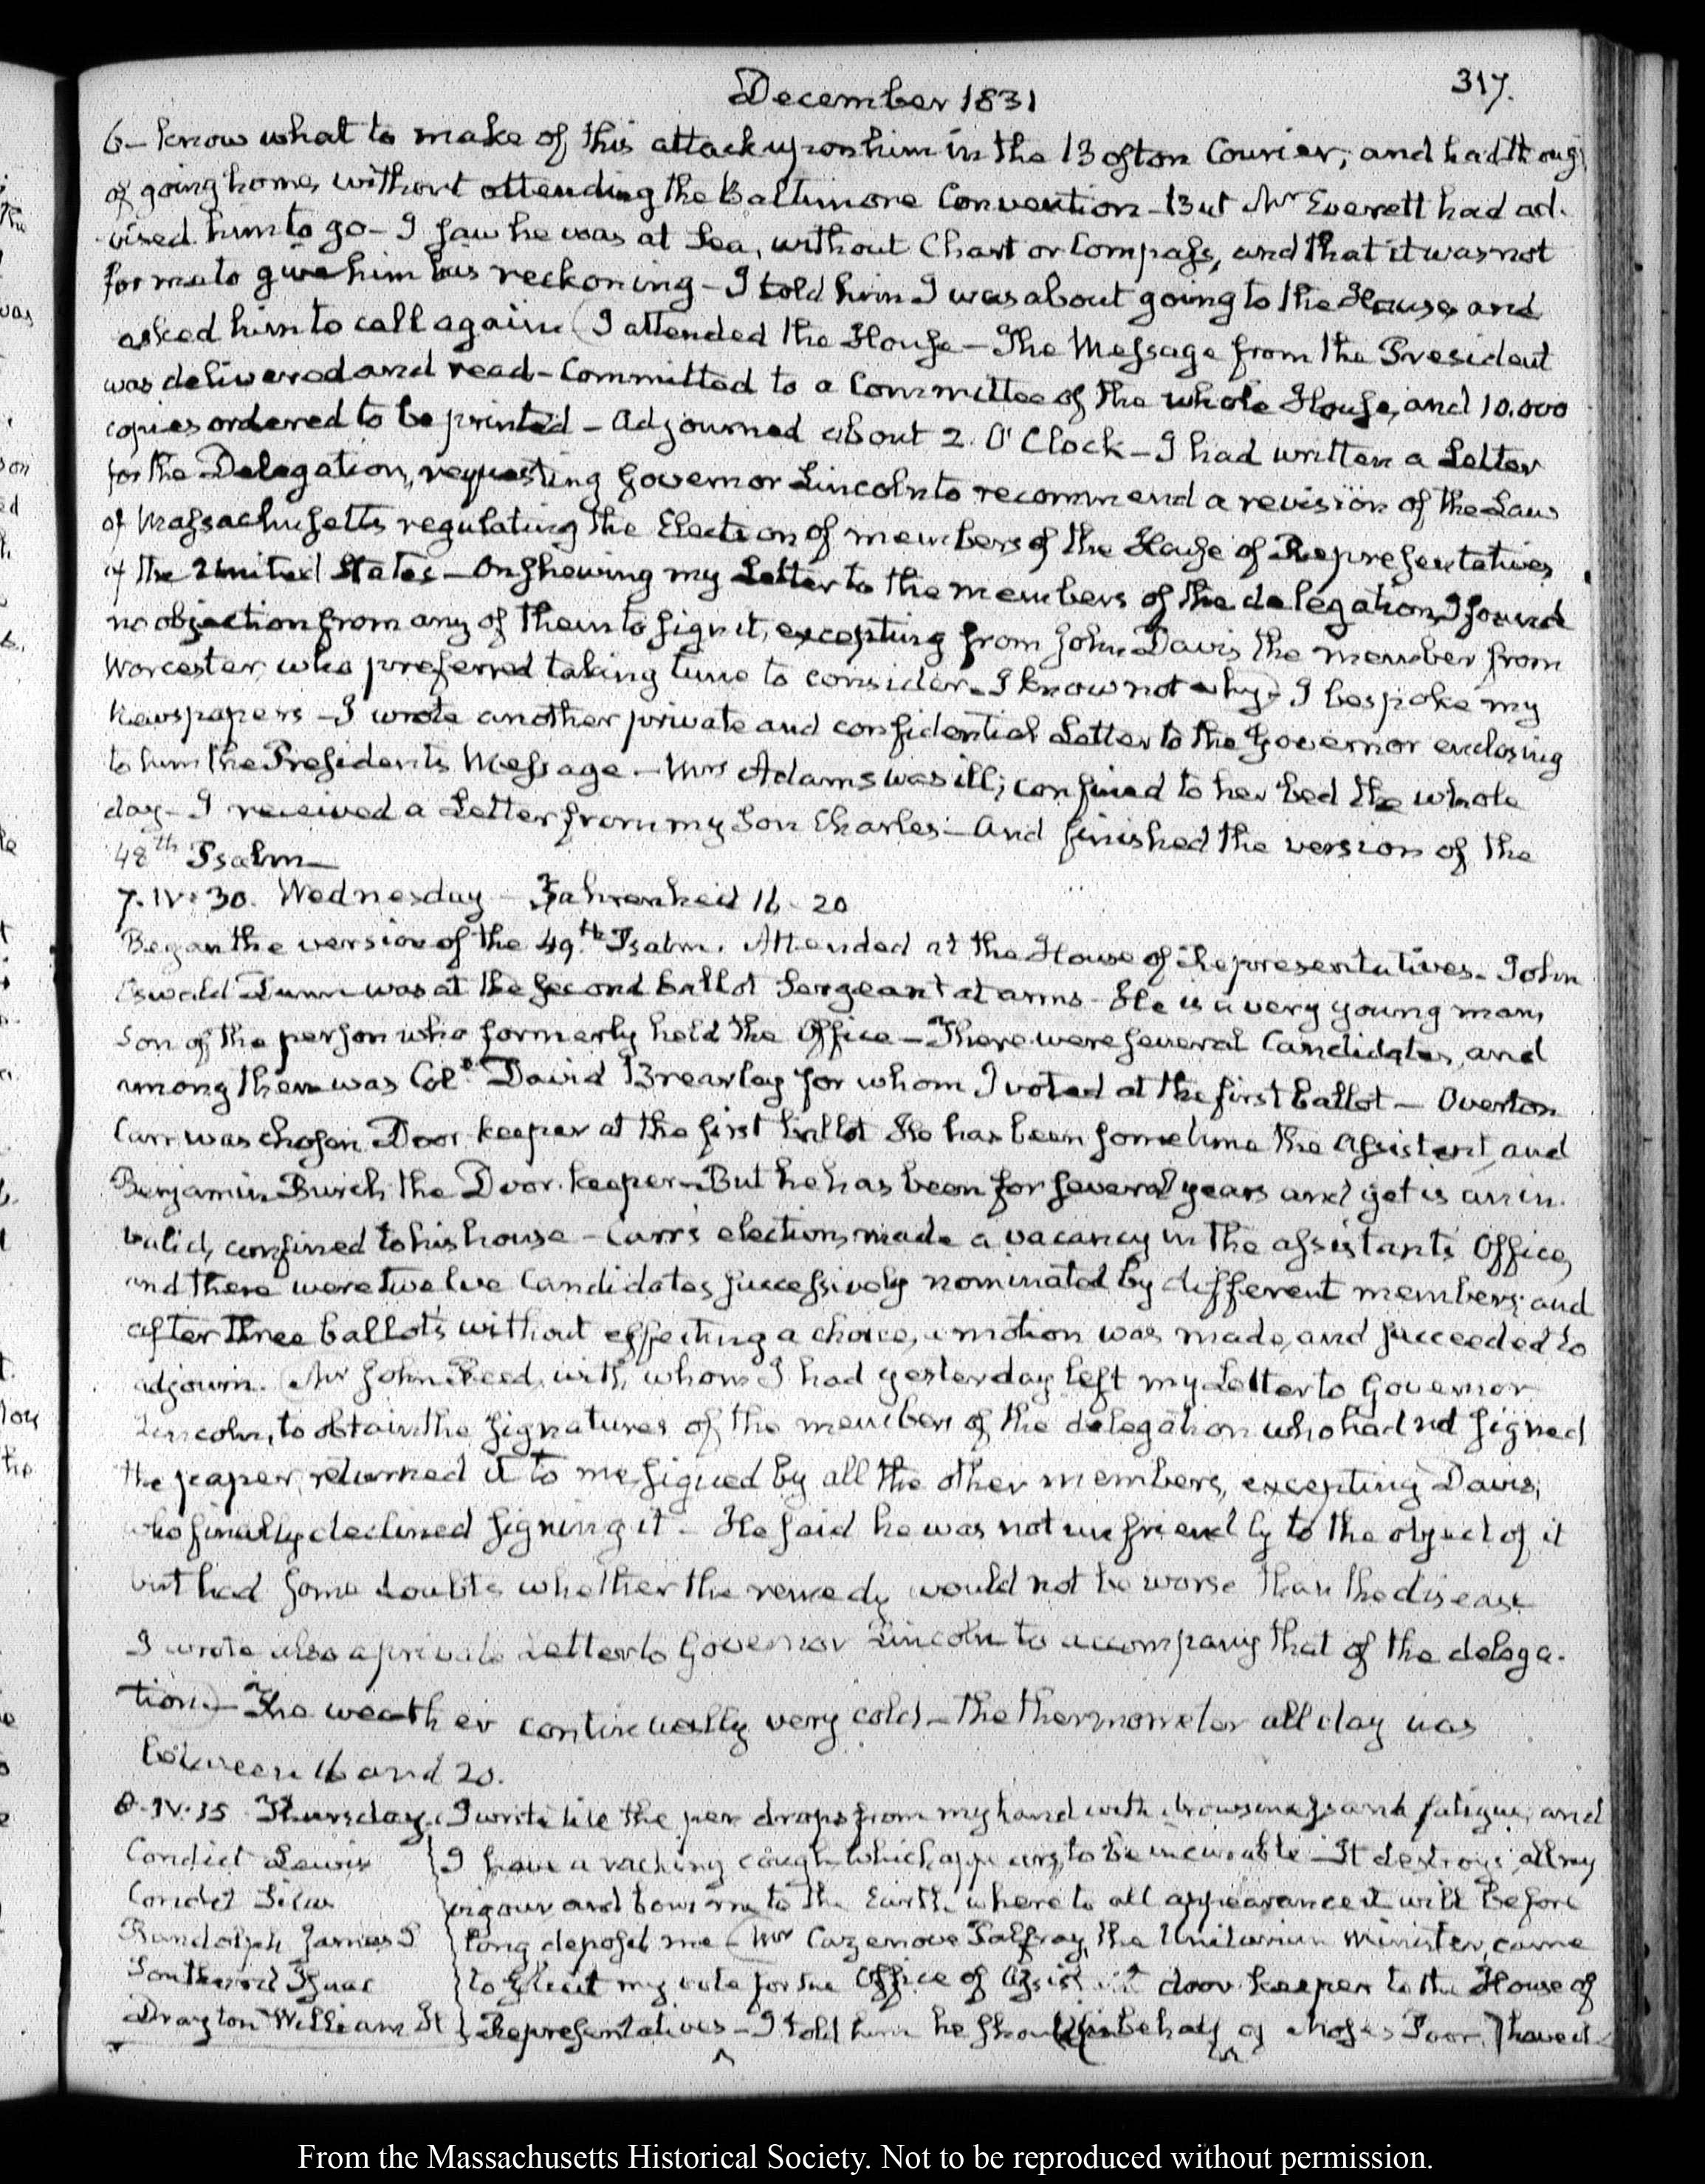 December 1831
317.
6– know what to make of this attack upon him in the Boston Courier; and had thoug
of going home, without attending the Baltimore Convention – But Mr Everett had ad-
vised him to go – I saw he was at Sea, without Chart or Compass, and that it was not
for me to give him his reckoning – I told him I was about going to the House, and
asked him to call again (I attended the House – The Message from the President
was delivered and read – Committed to a Committee of the whole House, and 10.000
copies ordered to be printed – Adjourned about 2. O'Clock – I had written a Letter
for the Delegation, requesting Governor Lincoln to recommend a revision of the Law
of Massachusetts regulating the Election of members of the House of Representatives
of the United States – On shewing my Letter to the members of the delegation, I found
no objection from any of them to sign it, excepting from John Davis the member from
Worcester, who preferred taking time to consider. I know not why) I bespoke my
Newspapers – I wrote another private and confidential Letter to the Governor enclosing
to him the Presidents Message – Mrs Adams was ill; confined to her bed the whole
day – I received a Letter from my Son Charles – And finished the version of the
48th Psalm –
7. IV. 30. Wednesday – Fahrenheit 16 – 20
Began the version of the 49th Psalm. Attended at the House of Representatives – John
Oswald Dunn was at the second ballot Sergeant at arms – He is a very young man,
Son of the person who formerly held the Office – There were several Candidates, and
among them was Coll David Brearley for whom I voted at the first ballot – Overton
Carr was chosen Door keeper at the first ballot He has been sometime the Assistent, and
Benjamin Burch the Door-keeper – But he has been for several years and yet is an in-
valid, confined to his house – Carr's election, made a vacancy in the assistants Office,
and there were twelve Candidates successively nominated by different members; and
after three ballots without effecting a choice, a motion was made, and succeeded to
adjourn. (Mr John Reed, with whom I had yesterday left my Letter to Governor
Lincoln, to obtain the signatures of the members of the delegation who had not signed
the paper, returned it to me signed by all the other members, excepting Davis;
who finally declined signing it – He said he was not unfriendly to the object of it
but had some doubts whether the remedy would not be worse than the disease
I wrote also a private Letter to Governor Lincoln to accompany that of the delega-
tion.) – The weather continually very cold – the thermometer all day was
between 16 and 20.
8. IV. 15 Thursday. I write till the pen drops from my hand with drowsiness and fatigue, and
Condict Lewis } I have a racking cough which appears to be incurable – It destroys all my
Condit Silas } vigour and bows me to the Earth, where to all appearance it will before
Randolph James F } long deposit me – (Mr Cazenove Palfray, the Unitarian Minister, came
Southard Isaac } to solicit my vote for the Office of Assistant door keeper to the House of
Drayton William St } Representatives – I told him he should (in behalf of Moses Poor.) have it